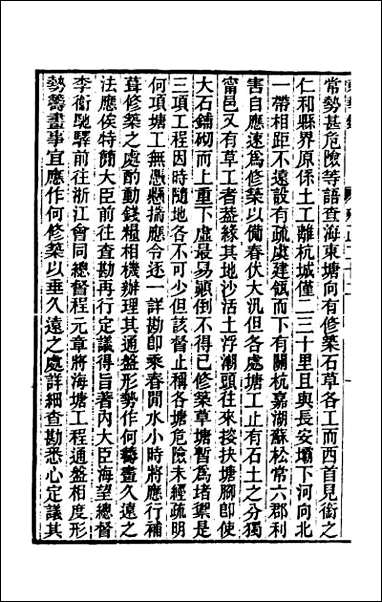 常勢甚危險等語查海東塘向有修築石草各工而西首見銜之
仁和縣界原係土工離杭城僅二三十里且與長安壩下河向北
一帶相距不遠設有疏虞建瓴而下有關杭嘉湖蘇松常六郡利
害自應速爲修築以備春伏大汛但各處塘工止有石土之分獨
甯邑又有草工者葢緣其地沙活土浮潮頭往來挨扶塘腳卽使
大石鋪砌而上重下虛最易顚倒不得已修築草塘暫爲堵禦是
三項工程因時隨地各不可少但該督止稱各塘危險未經疏明
何項塘工無憑懸擬應令逐一詳勘卽乘春閒水小時將應行補
葺修築之處酌動錢糧相機辦理其通盤形勢作何籌畫久遠之
法應俟特簡大臣前往查勘再行定議得旨著內大臣海望總督
李衞馳驛前往浙江會同總督程元章將海塘工程通盤相度形
勢籌畫事宜應作何修築以垂久遠之處詳細查勘悉心定議其